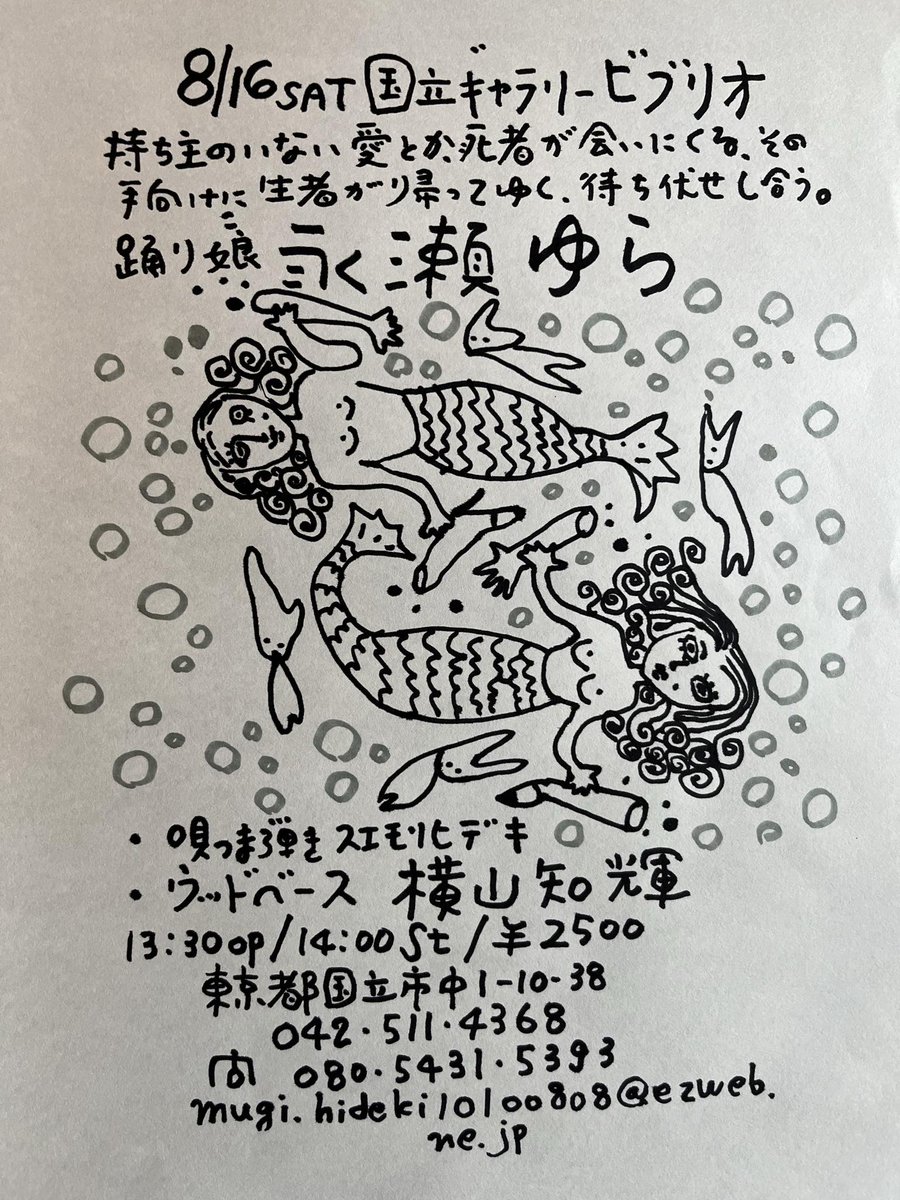 8/16 SAT 国立ギャラリービブリオ
持ち主のいない愛とか、死者が会いにくる、その
手向けに生者がり帰ってゆく、待ち伏せし合う。
踊り娘 永瀬ゆら
こ
・唄つま弾き スエモリヒデキ
・ウッドベース 横山知輝
13:30op/14:00St/¥2500
東京都国立市中1-10-38
042・511・4368
問 080・5431・5393
mugi.hideki10100808@ezweb.
ne.jp